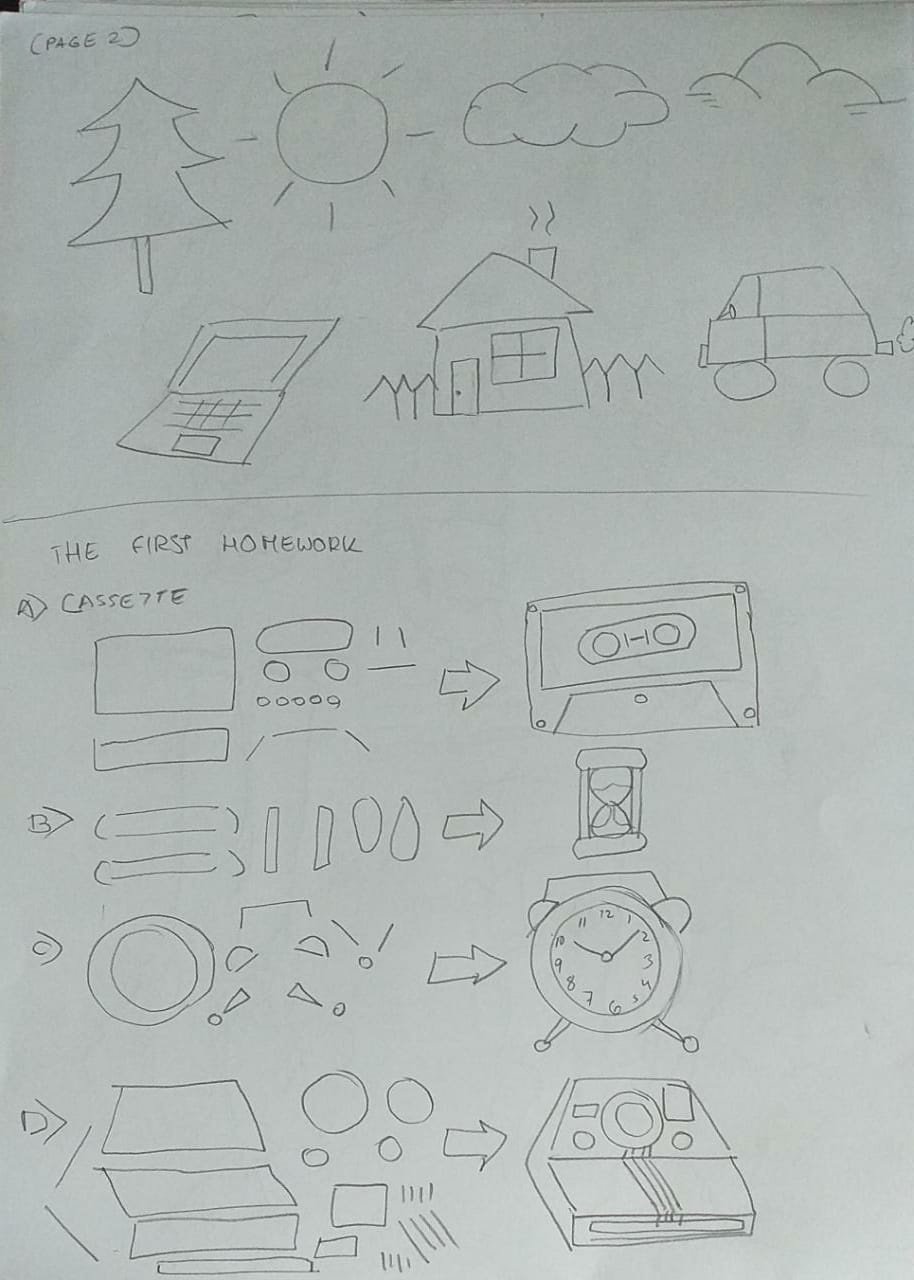 (PAGE 2)
THE FIRST HOMEWORK
A) CASSETTE
B)
C)
12
11 1
10 2
9 3
8 4
7 5
6
D)